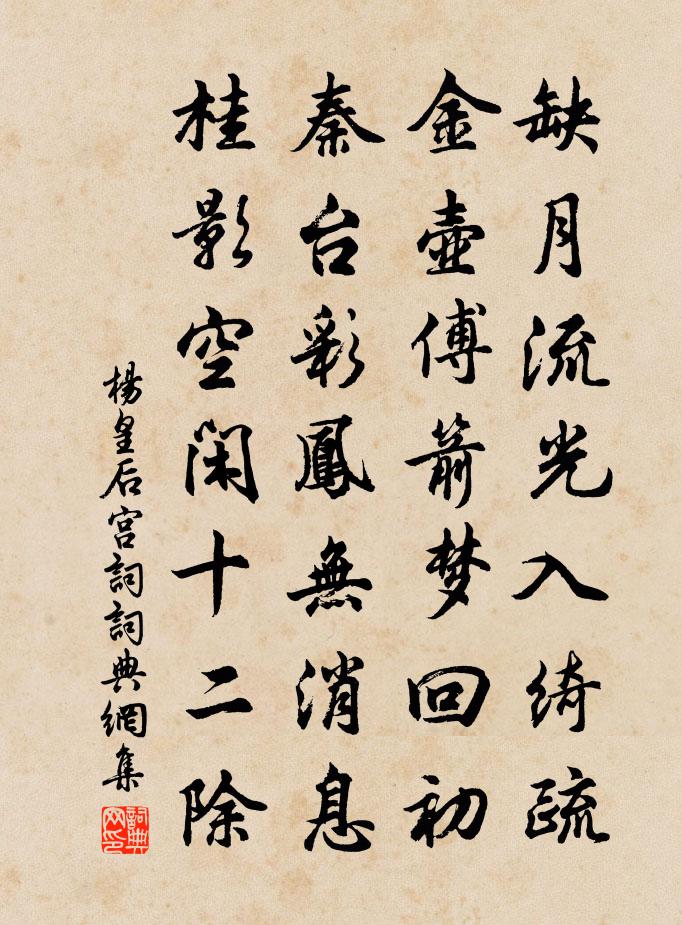 缺月流光入绮疏
金壶傅箭梦回初
秦台彩鳳無消息
桂影空闲十二除
楊皇后宫詞詞典網集
詞典网印